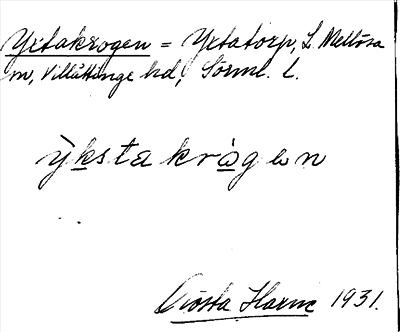 Yxtakrogen = Yxtatorp, L. Mellösa
sn, Villåttinge hd, Sörml. l.
ỳkstakrògən
Gösta Harne 1931.